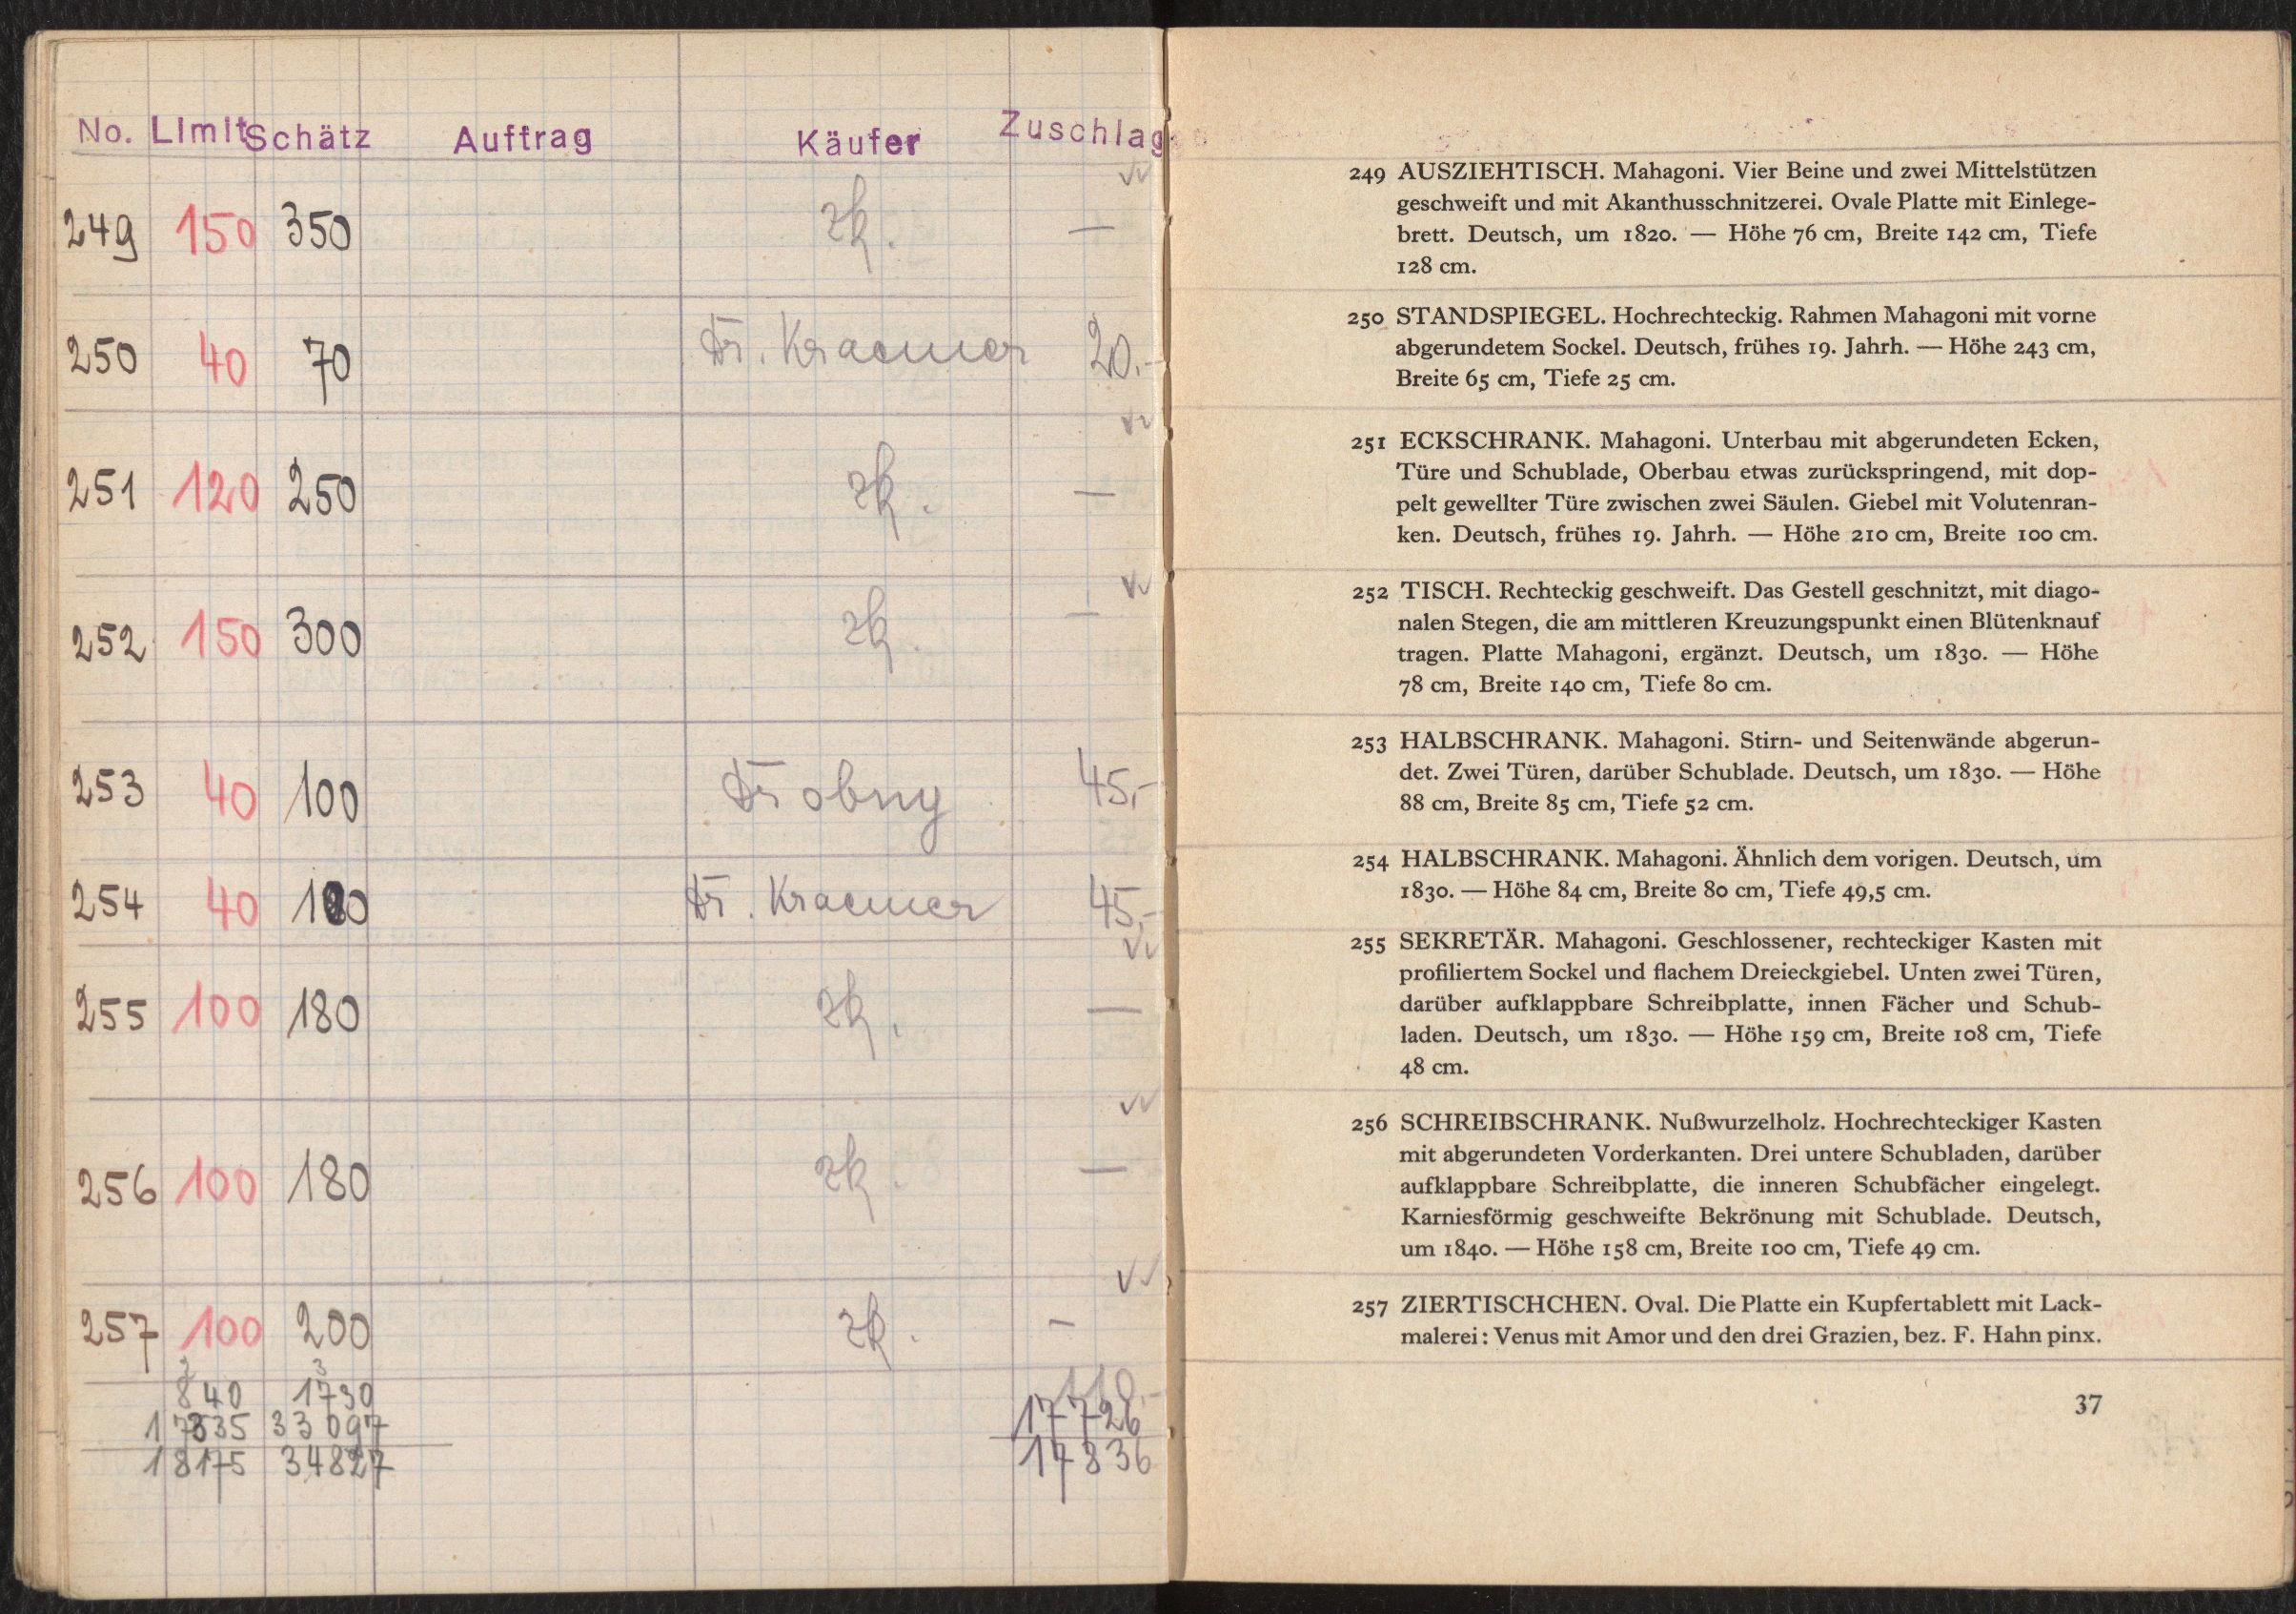 No. Limit Schätz Auftrag Käufer Zuschlag
249 150 350 zk. —
250 40 70 Dr. Kraemer 20.-
251 120 250 zk. —
252 150 300 zk. —
253 40 100 Drobny 45,-
254 40 100 Dr. Kraemer 45,-
255 100 180 zk. —
256 100 180 zk. —
257 100 200 zk. —
840 1730 110,-
17335 33097 17726
18175 34827 17836
249 AUSZIEHTISCH. Mahagoni. Vier Beine und zwei Mittelstützen
geschweift und mit Akanthusschnitzerei. Ovale Platte mit Einlege-
brett. Deutsch, um 1820. — Höhe 76 cm, Breite 142 cm, Tiefe
128 cm.
250 STANDSPIEGEL. Hochrechteckig. Rahmen Mahagoni mit vorne
abgerundetem Sockel. Deutsch, frühes 19. Jahrh. — Höhe 243 cm,
Breite 65 cm, Tiefe 25 cm.
251 ECKSCHRANK. Mahagoni. Unterbau mit abgerundeten Ecken,
Türe und Schublade, Oberbau etwas zurückspringend, mit dop-
pelt gewellter Türe zwischen zwei Säulen. Giebel mit Volutenran-
ken. Deutsch, frühes 19. Jahrh. — Höhe 210 cm, Breite 100 cm.
252 TISCH. Rechteckig geschweift. Das Gestell geschnitzt, mit diago-
nalen Stegen, die am mittleren Kreuzungspunkt einen Blütenknauf
tragen. Platte Mahagoni, ergänzt. Deutsch, um 1830. — Höhe
78 cm, Breite 140 cm, Tiefe 80 cm.
253 HALBSCHRANK. Mahagoni. Stirn- und Seitenwände abgerun-
det. Zwei Türen, darüber Schublade. Deutsch, um 1830. — Höhe
88 cm, Breite 85 cm, Tiefe 52 cm.
254 HALBSCHRANK. Mahagoni. Ähnlich dem vorigen. Deutsch, um
1830. — Höhe 84 cm, Breite 80 cm, Tiefe 49,5 cm.
255 SEKRETÄR. Mahagoni. Geschlossener, rechteckiger Kasten mit
profiliertem Sockel und flachem Dreieckgiebel. Unten zwei Türen,
darüber aufklappbare Schreibplatte, innen Fächer und Schub-
laden. Deutsch, um 1830. — Höhe 159 cm, Breite 108 cm, Tiefe
48 cm.
256 SCHREIBSCHRANK. Nußwurzelholz. Hochrechteckiger Kasten
mit abgerundeten Vorderkanten. Drei untere Schubladen, darüber
aufklappbare Schreibplatte, die inneren Schubfächer eingelegt.
Karniesförmig geschweifte Bekrönung mit Schublade. Deutsch,
um 1840. — Höhe 158 cm, Breite 100 cm, Tiefe 49 cm.
257 ZIERTISCHCHEN. Oval. Die Platte ein Kupfertablett mit Lack-
malerei: Venus mit Amor und den drei Grazien, bez. F. Hahn pinx.
37